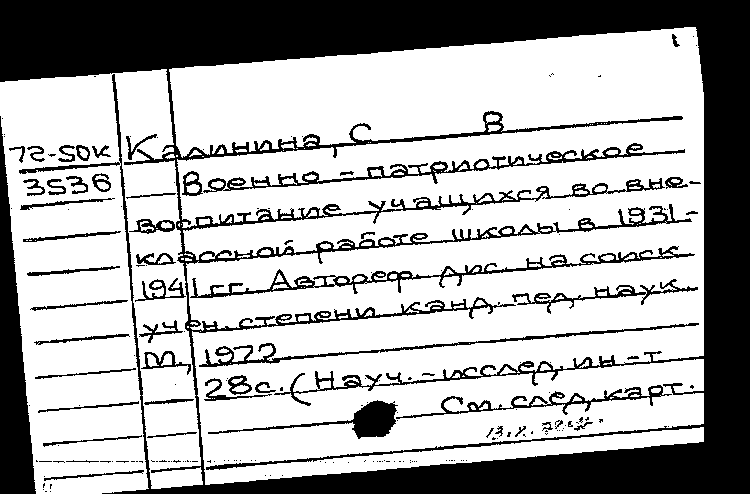 72-50К Калинина, С В
3536 Военно-патриотическое
воспитание учащихся во вне-
классной работе школы в 1931-
1941 гг. Автореф. дис. на соиск
учен. степени канд. пед. наук
М, 1972
28с. (Науч.-исслед, ин-т
См. след, карт.